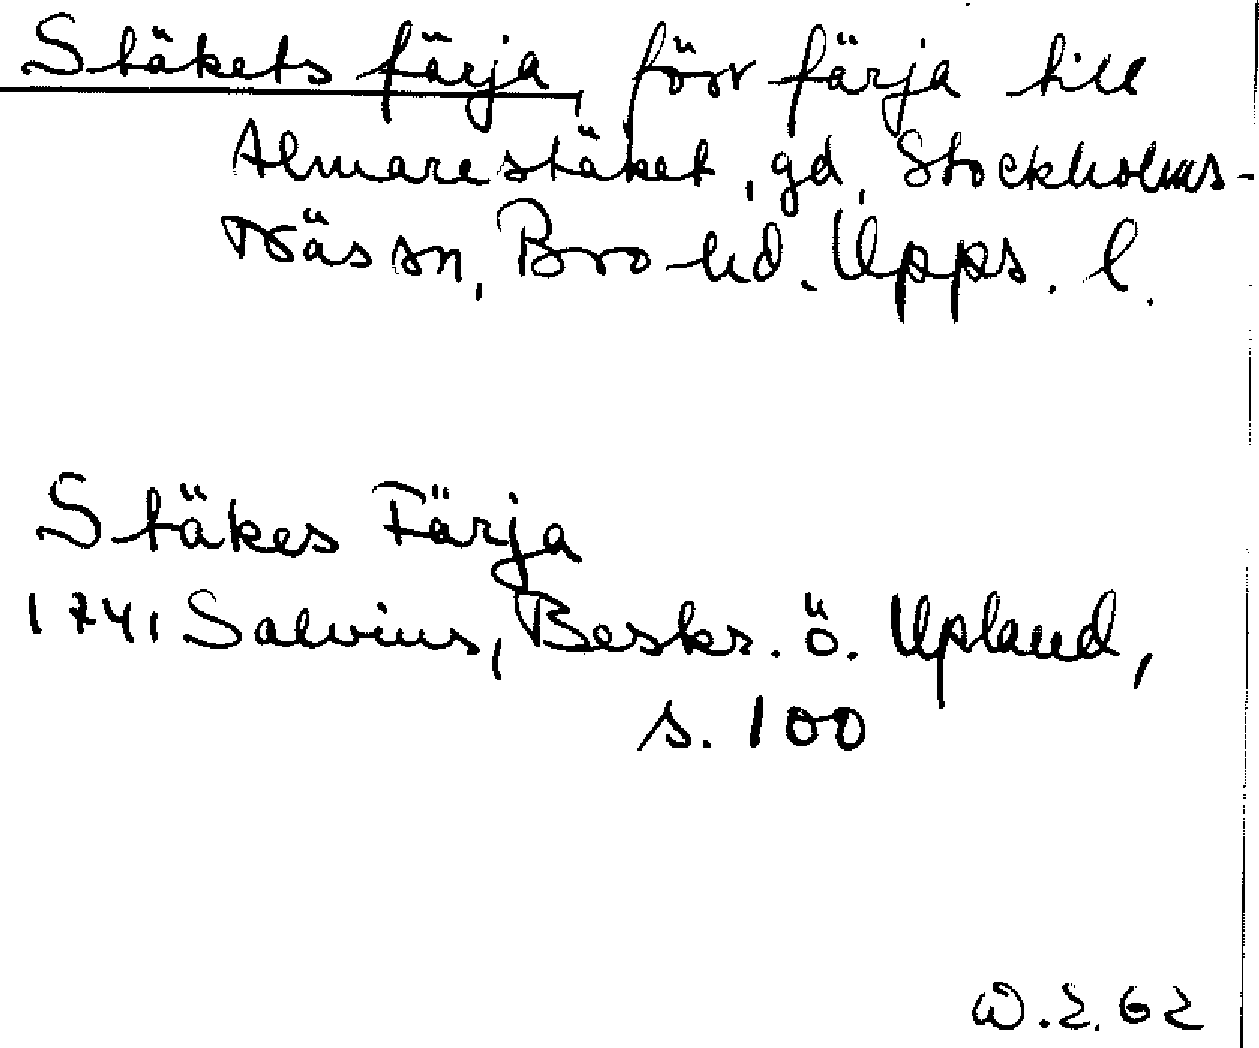 Stäkets färja, förr färja till
Almarestäket, gd, Stockholms-
Näs sn, Bro hd. Upps. l.
Stäkes Färja
1741 Salvius, Beskr. ö. Upland,
s. 100
2. 62